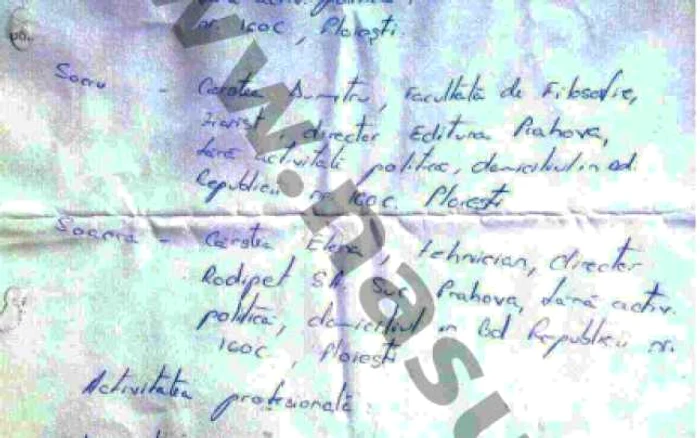 fără activ. politică
nr. 160C, Ploiești
Socru - Carstea Dumitru, Facultată de Filosofie,
ziarist, director Editura Prahova,
fără activitati politice, domiciliul in bd.
Republicii nr. 160C. Ploiești
Soacra - Carstea Elena, tehnician, director
Rodipet SA Suc. Prahova, fără activ.
politică, domiciliul in Bd Republicii nr.
160C, Ploiești
Activitatea profesională
www.nasu